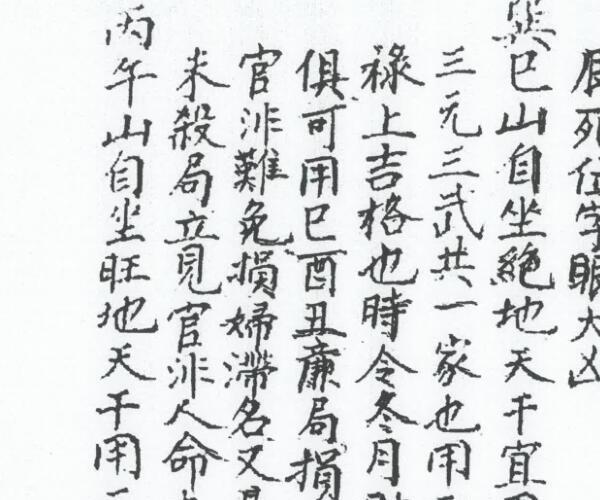 辰死位字眼大凶
巽巳山自坐絕地天干宜
三元三武共一家也用
祿上吉格也時令冬月
俱可用巳酉丑廉局損
官非難免損婦滯名又
未殺局立見官非人命
丙午山自坐旺地天干用